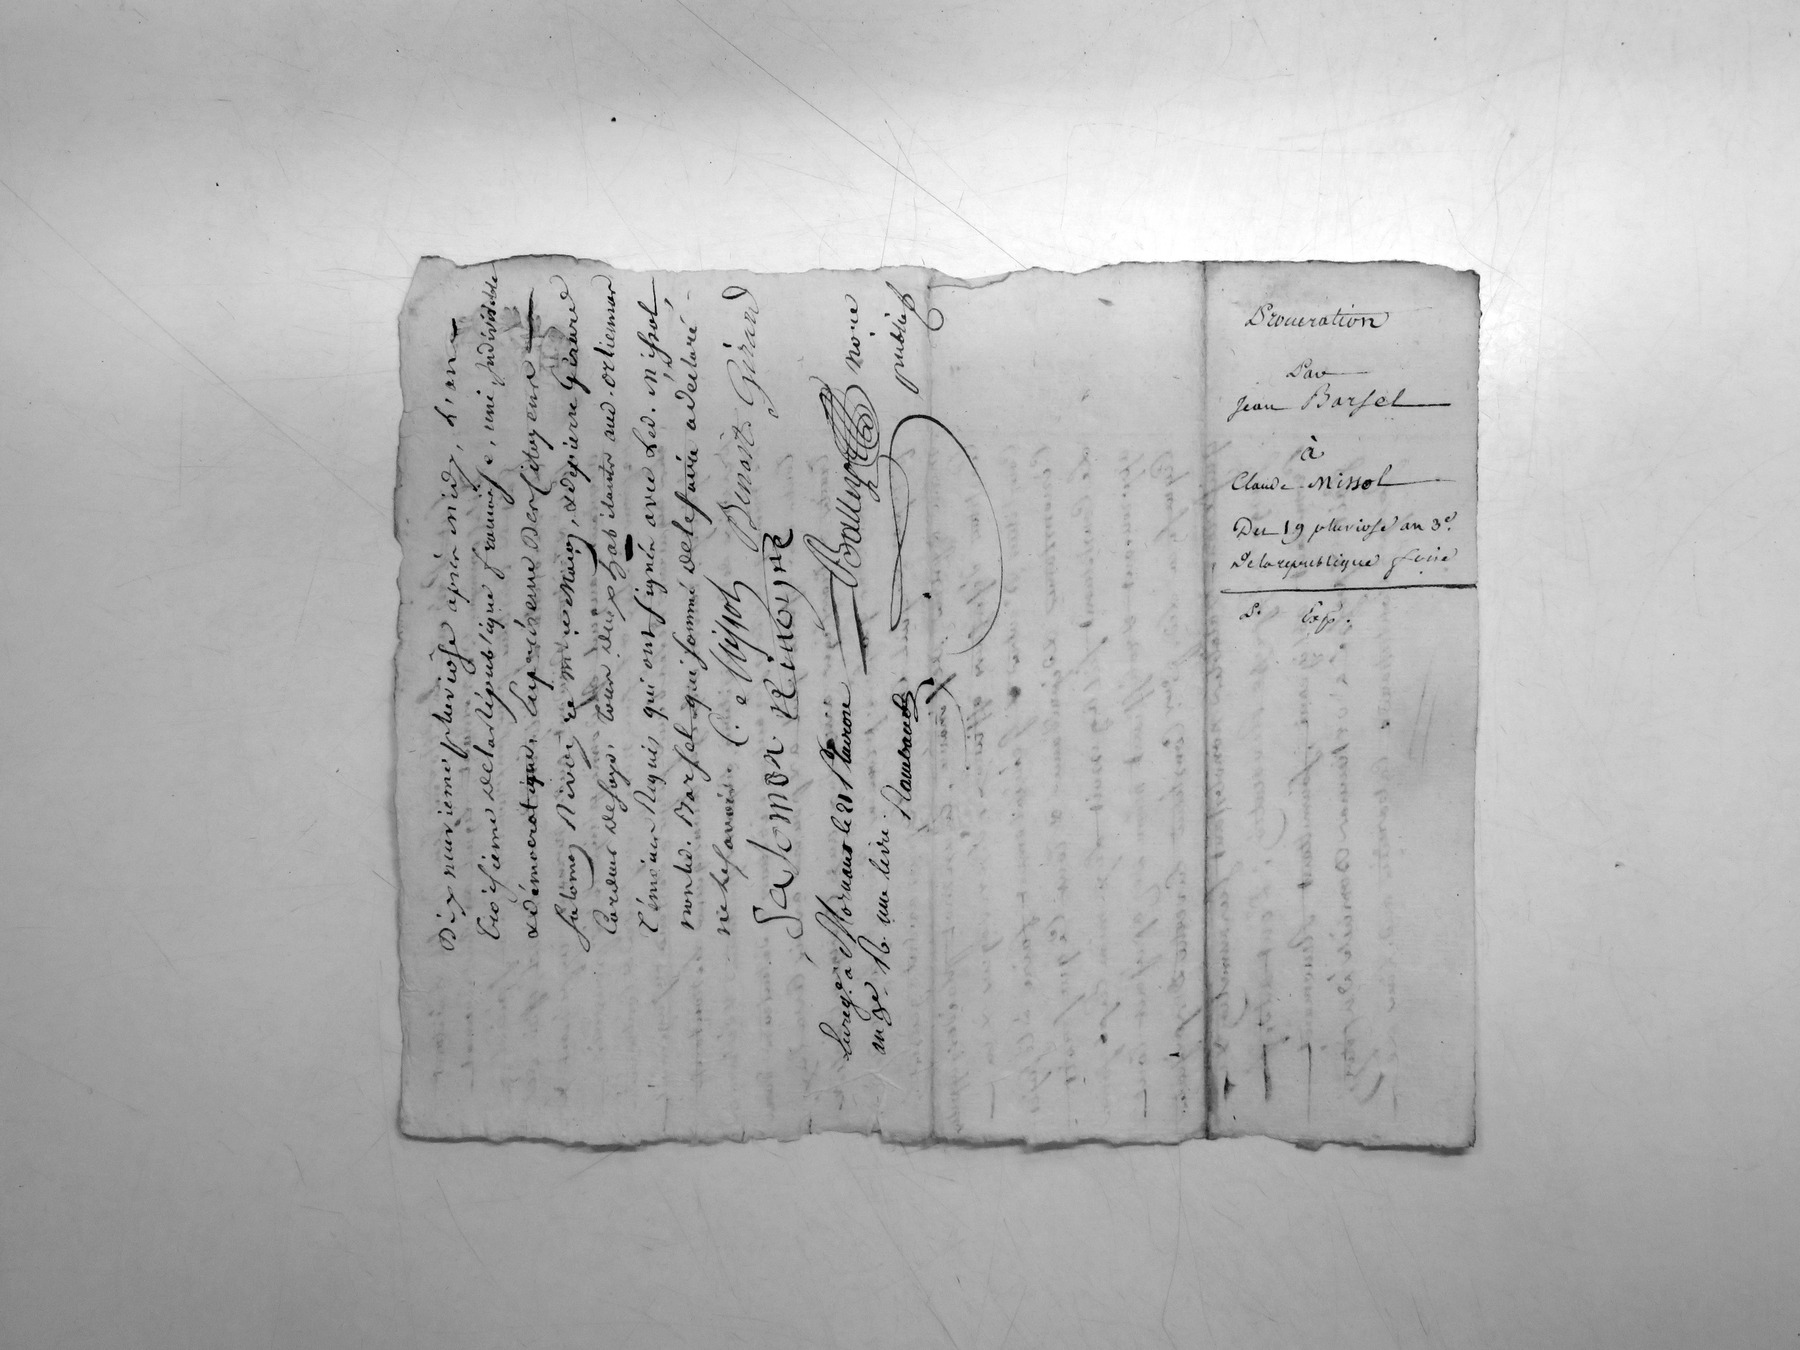 Dix neuvieme pluviose après midy, L'an
troisieme de la République françoise, une Indivisible
& démocratique, En présence des citoyens
Salomon Rivoire
Cardeur de soye, tous deux habitants aud. ortiennar
témoins Requis qui ont signés avec Led. Missol
non led. Barsel qui sommé de le faire a declaré
ne le savoir C. e Missol Benoit Girard
Salomon Rivoyre
Balley no.re
public
Enreg.é à Mornant le 21 Pluviose
an 3e R. une livre. Rambaud
Procuration
Par
Jean Barsel
à
Claude Missol
Du 19 pluviose an 3e.
De la republique f.oise
Exp.